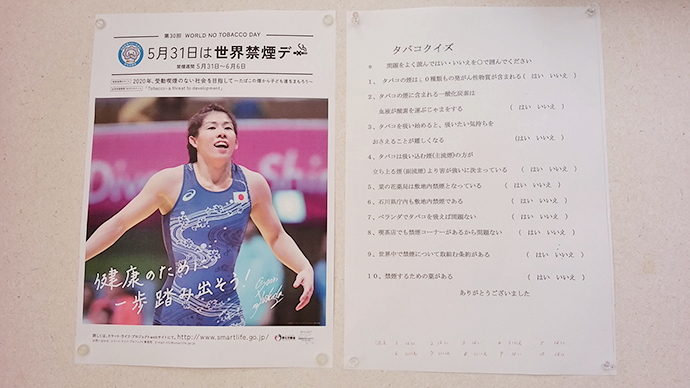 第30回 WORLD NO TOBACCO DAY
5月31日は世界禁煙デー
禁煙週間 5月31日～6月6日
2020年、受動喫煙のない社会を目指して ～たばこの煙から子ども達をまもろう～
「Tobacco-a threat to development」
健康のために
一歩踏み出そう！
http://www.smartlife.go.jp/
タバコクイズ
問題をよく読んではい・いいえを〇で囲んでください
1、タバコの煙は60種類もの発がん性物質が含まれる ( はい いいえ )
2、タバコの煙に含まれる一酸化炭素は
血液が酸素を運ぶじゃまをする ( はい いいえ )
3、タバコを吸い始めると、吸いたい気持ちを
おさえることが難しくなる ( はい いいえ )
4、タバコは吸い込む煙(主流煙)の方が
立ち上る煙(副流煙)より害が強いに決まっている ( はい いいえ )
5、菜の花薬局は敷地内禁煙となっている ( はい いいえ )
6、石川県庁内も敷地内禁煙である ( はい いいえ )
7、ベランダでタバコを吸えば問題ない ( はい いいえ )
8、喫茶店でも禁煙コーナーがあるから問題ない ( はい いいえ )
9、世界中で禁煙について取組む条約がある ( はい いいえ )
10、禁煙するための薬がある ( はい いいえ )
ありがとうございました